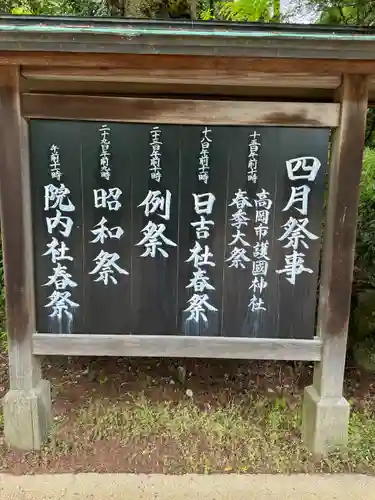 四月祭事
十五日午前十時
高岡市護國神社
春季大祭
十八日午前十時
日吉社祭
二十三日午前十時
例祭
二十九日午前九時
昭和祭
午前十時
院内社春祭